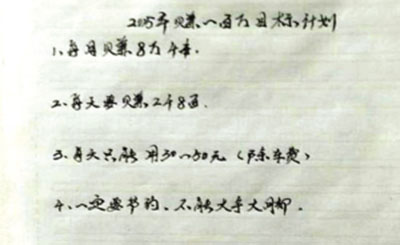 2015年赚一百万目标计划
1、每月赚8万4千.
2、每天要赚2千8百.
3、每天只能用30~50元（除车费）
4、一定要节约、不能大手大脚.